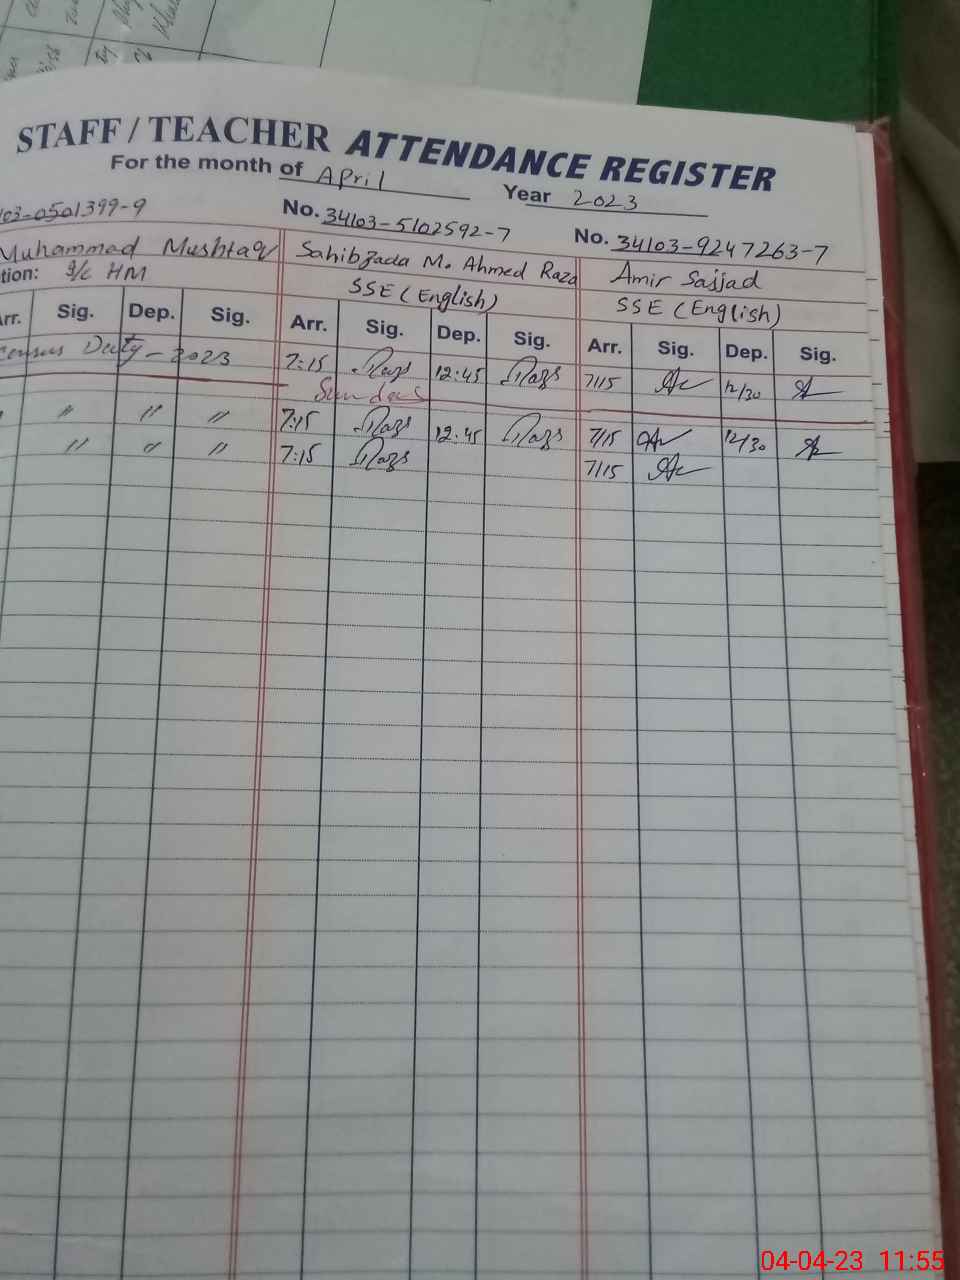 STAFF / TEACHER ATTENDANCE REGISTER
For the month of April Year 2023
103-0501399-9 No. 34103-5102592-7 No. 34103-9247263-7
Muhammad Mushtaq Sahibzada M. Ahmed Raza Amir Sajjad
tion: I/C HM SSE (English) SSE (English)
Arr. Sig. Dep. Sig. Arr. Sig. Dep. Sig. Arr. Sig. Dep. Sig.
Census Duty - 2023 7:15 12:45 7/15 12/30
Sunday
" " " 7:15 12:45 7/15 12/30
" " " 7:15 7/15
04-04-23 11:55